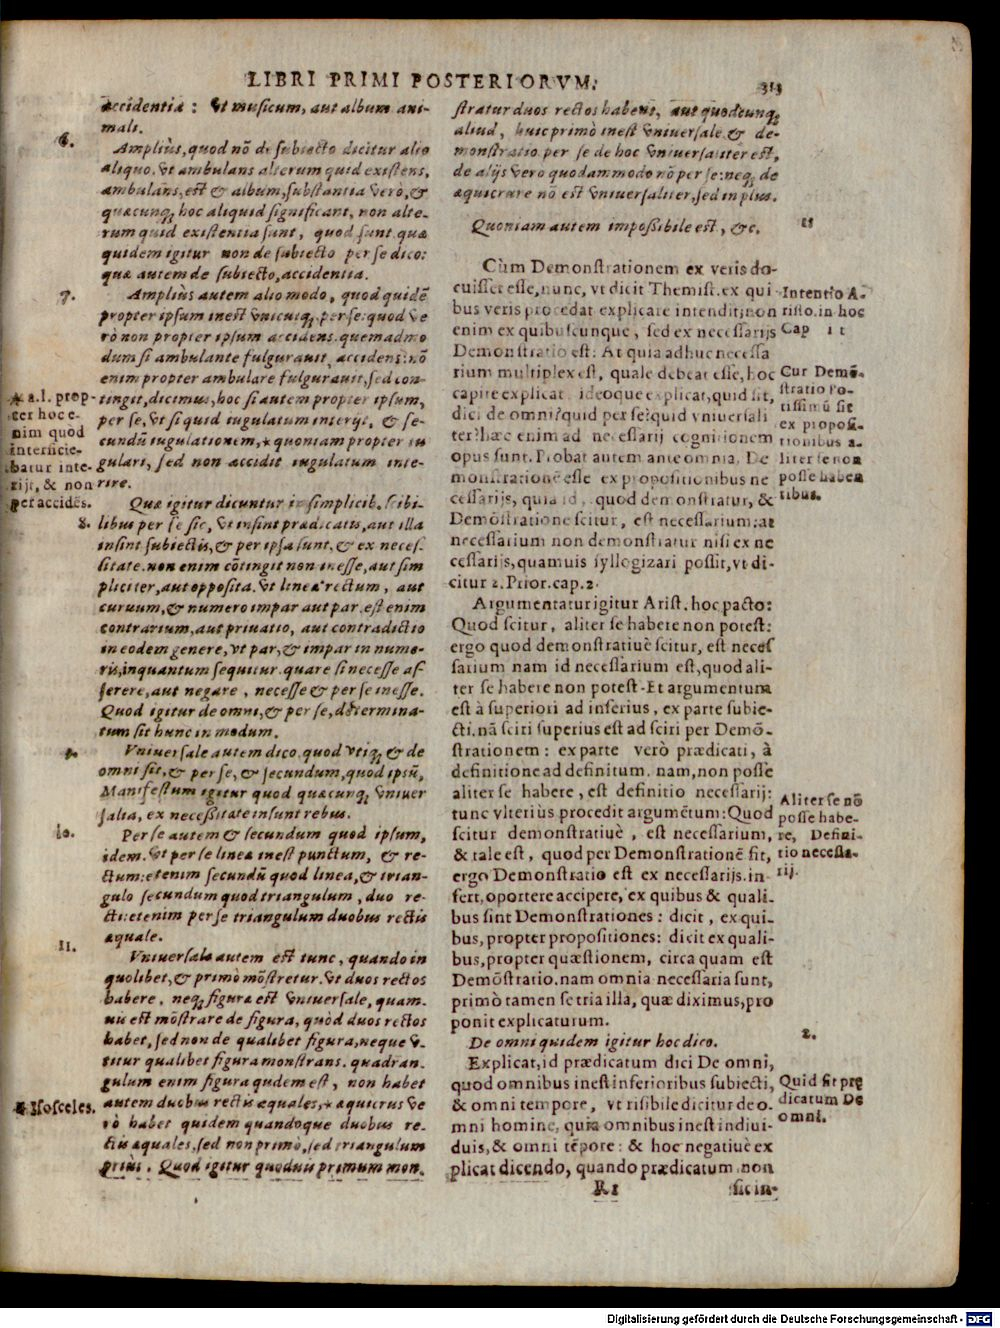 LIBRI PRIMI POSTERIORVM. 313
accidentia: Vt musicum, aut album ani-
mali.
6.
Ampliùs, quod nō de subiecto dicitur alio
aliquo. Vt ambulans alterum quid existens,
ambulans, est & album, substantia verò, &
quæcunq; hoc aliquid significant, non alte-
rum quid existentia sunt, quod sunt. quæ
quidem igitur non de subiecto per se dico:
quæ autem de subiecto, accidentia.
7.
Ampliùs autem alio modo, quod quidē
propter ipsum inest vnicuiq; per se: quod ve
rò non propter ipsum accidens. quemadmo
dum si ambulante fulgurauit, accidens: nō
enim propter ambulare fulgurauit, sed con-
tingit, dicimus, hoc si autem propter ipsum,
per se, vt si quid iugulatum interijt, & se-
cundū iugulationem, * quoniam propter iu
gulari, sed non accidit iugulatum inte-
rire.
* a.l. prop-
ter hoc e-
nim quod
interficie-
batur inte-
rijt, & non
per accidēs.
8.
Quæ igitur dicuntur in simplicib. scibi-
libus per se sic, vt insint prædicatis, aut illa
insint subiectis, & per ipsa sunt, & ex neces-
sitate. non enim cōtingit non inesse, aut sim
pliciter, aut opposita. Vt lineæ rectum, aut
curuum, & numero impar aut par. est enim
contrarium, aut priuatio, aut contradictio
in eodem genere, vt par, & impar in nume-
ris, inquantum sequitur. quare si necesse af-
ferere, aut negare, necesse & per se inesse.
Quod igitur de omni, & per se, determina-
tum sit hunc in modum.
9.
Vniuersale autem dico, quod vtiq; & de
omni sit, & per se, & secundum, quod ipsū,
Manifestum igitur quod quæcunq; vniuer
salia, ex necessitate insunt rebus.
10.
Per se autem & secundum quod ipsum,
idem. Vt per se lineæ inest punctum, & re-
ctum: etenim secundū quod linea, & trian-
gulo secundum quod triangulum, duo re-
cti: etenim per se triangulum duobus rectis
æquale.
11.
Vniuersale autem est tunc, quando in
quolibet, & primò mōstretur. Vt duos rectos
habere, neq; figuræ est vniuersale, quam-
uis est mōstrare de figura, quòd duos rectos
habet, sed non de qualibet figura, neque v-
titur qualibet figura monstrans. quadran-
gulum enim figura qudem est, non habet
autem duobus rectis æquales, * æquicrus ve
rò habet quidem quandoque duobus re-
ctis æquales, sed non primò, sed triangulum
priùs. Quod igitur quoduis primum mon-
* Isosceles.
stratur duos rectos habens, aut quodcunq;
aliud, huic primò inest vniuersale. & de-
monstratio per se de hoc vniuersaliter est,
de alijs verò quodammodo nō per se: neq; de
æquicrure nō est vniuersaliter, sed in plus.
Quoniam autem impossibile est, &c.
Cùm Demonstrationem ex veris do-
cuisset esse, nunc, vt dicit Themist. ex qui
bus veris procedat explicare intendit; non
enim ex quibuscunque, sed ex necessarijs
Demonstratio est: At quia adhuc necessa
rium multiplex est, quale debeat esse, hoc
capite explicat ideoque explicat, quid sit,
dici de omni? quid per se? quid vniuersali
ter? hæc enim ad necessarij cognitionem
opus sunt. Probat autem ante omnia, De
monstrationē esse ex propositionibus ne
cessarijs, quia id, quod demonstratur, &
Demōstratione scitur, est necessarium: at
necessarium non demonstratur nisi ex ne
cessarijs, quamuis syllogizari possit, vt di-
citur 2. Prior. cap. 2.
Intentio A-
risto. in hoc
Cap 11
Cur Demō-
stratio Po-
tissimū sit
ex proposi-
tionibus a-
liter se non
posse haben
tibus.
Argumentatur igitur Arist. hoc pacto:
Quod scitur, aliter se habere non potest:
ergo quod demonstratiuè scitur, est neces
sarium nam id necessarium est, quod ali-
ter se habere non potest. Et argumentum
est à superiori ad inferius, ex parte subie-
cti. nā sciri superius est ad sciri per Demō-
strationem: ex parte verò prædicati, à
definitione ad definitum. nam, non posse
aliter se habere, est definitio necessarij:
tunc vlteriùs procedit argumētum: Quod
scitur demonstratiuè, est necessarium,
& tale est, quod per Demonstrationē sit,
ergo Demonstratio est ex necessarijs. in-
fert, oportere accipere, ex quibus & quali-
bus sint Demonstrationes: dicit, ex qui-
bus, propter propositiones: dicit ex quali-
bus, propter quæstionem, circa quam est
Demōstratio. nam omnia necessaria sunt,
primò tamen se tria illa, quæ diximus, pro
ponit explicaturum.
Aliter se nō
posse habe-
re, Defini-
tio necessa-
rij.
De omni quidem igitur hoc dico. 2.
Explicat, id prædicatum dici De omni,
quod omnibus inest inferioribus subiecti,
& omni tempore, vt risibile dicitur de o-
mni homine, quia omnibus inest indiui-
duis, & omni tēpore: & hoc negatiuè ex
plicat dicendo, quando prædicatum non
Quid sit prę
dicatum De
omni.
R 1 sic in-
Digitalisierung gefördert durch die Deutsche Forschungsgemeinschaft - DFG